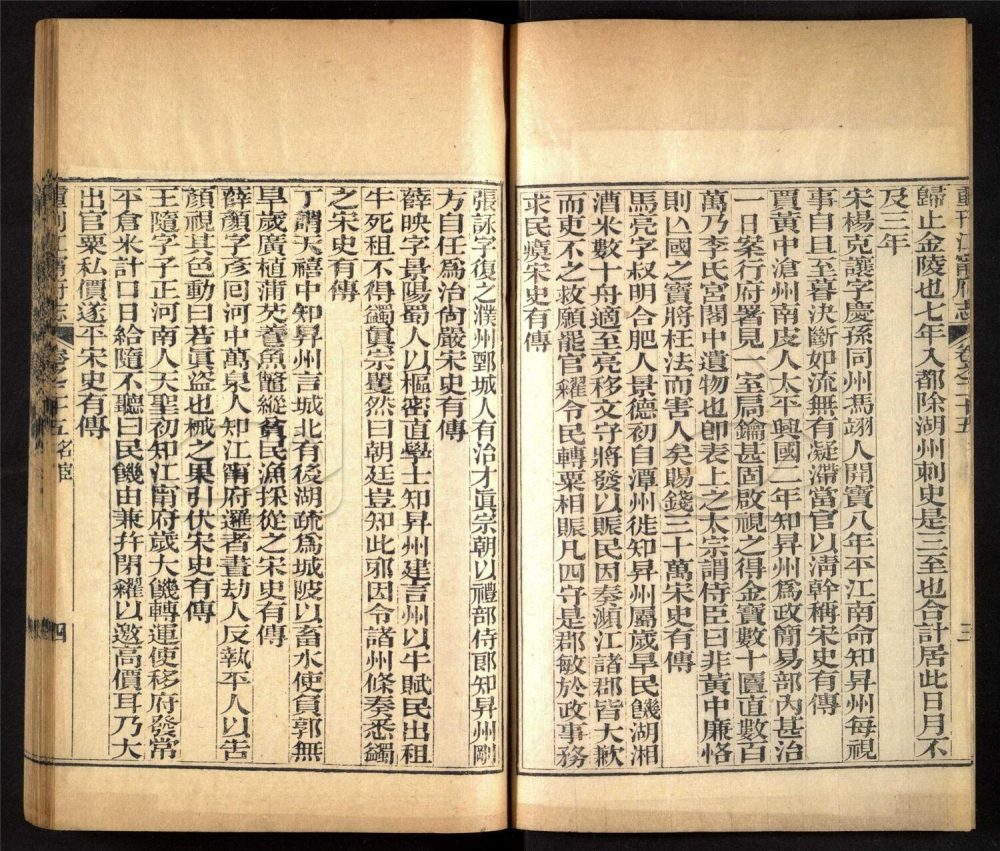 重刊江甯府志 卷之二十五 三
歸止金陵也七年入都除湖州刺史是三至也合計居此日月不
及三年
宋楊克讓字慶孫同州馮翊人開寶八年平江南命知昇州每視
事自旦至暮決斷如流無有凝滯當官以淸幹稱宋史有傳
賈黃中滄州南皮人太平興國二年知昇州爲政簡易部內甚治
一日案行府署見一室扃鑰甚固啟視之得金寶數十匱直數百
萬乃李氏宮閣中遺物也卽表上之太宗謂侍臣曰非黃中廉恪
則亾國之寶將枉法而害人矣賜錢三十萬宋史有傳
馬亮字叔明合肥人景德初自潭州徙知昇州屬歲旱民饑湖湘
漕米數十舟適至亮移文守將發以賑民因奏瀕江諸郡皆大歉
而吏不之救願罷官糴令民轉粟相賑凡四守是郡敏於政事務
求民瘼宋史有傳
張詠字復之濮州鄄城人有治才眞宗朝以禮部侍郎知昇州剛
方自任爲治尙嚴宋史有傳
薛映字景陽蜀人以樞密直學士知昇州建言州以牛賦民出租
牛死租不得蠲眞宗矍然曰朝廷豈知此邪因令諸州條奏悉蠲
之宋史有傳
丁謂天禧中知昇州言城北有後湖疏爲城陂以畜水使負郭無
旱歲廣植蒲芡養魚鼈縱貧民漁採從之宋史有傳
薛顏字彥囘河中萬泉人知江甯府邏者晝劫人反執平人以告
顏視其色動曰若眞盜也械之果引伏宋史有傳
王隨字子正河南人天聖初知江甯府歲大饑轉運使移府發常
平倉米計口日給隨不聽曰民饑由兼幷閉糴以邀高價耳乃大
出官粟私價遂平宋史有傳
重刊江甯府志 卷之二十五 名宦 四